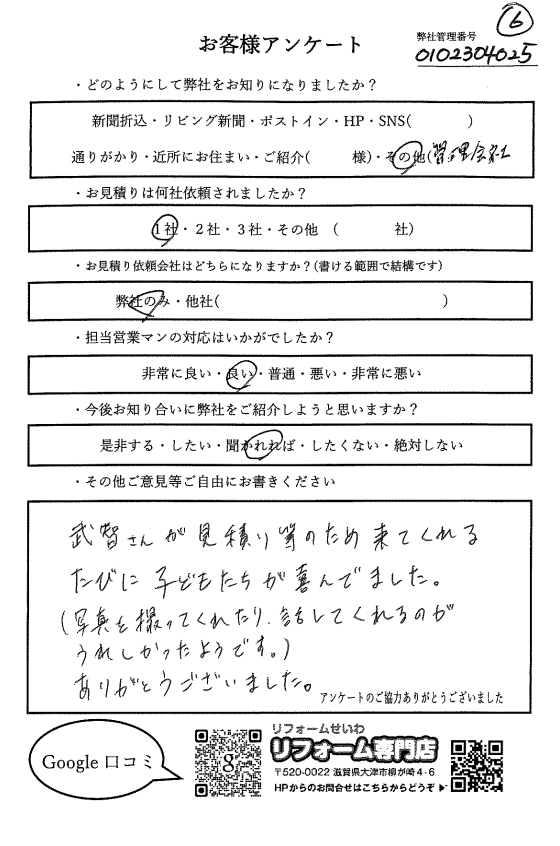 6
お客様アンケート
弊社管理番号
0102304025
・どのようにして弊社をお知りになりましたか？
新聞折込・リビング新聞・ポストイン・HP・SNS(　　　　)
通りがかり・近所にお住まい・ご紹介(　　　様)・その他(管理会社
・お見積りは何社依頼されましたか？
1社・2社・3社・その他　(　　　　社)
・お見積り依頼会社はどちらになりますか？(書ける範囲で結構です)
弊社のみ・他社(　　　　　　　　　　　　　　)
・担当営業マンの対応はいかがでしたか？
非常に良い・良い・普通・悪い・非常に悪い
・今後お知り合いに弊社をご紹介しようと思いますか？
是非する・したい・聞かれれば・したくない・絶対しない
・その他ご意見等ご自由にお書きください
武智さんが見積り等のため来てくれる
たびに子どもたちが喜んでました。
(写真を撮ってくれたり、話してくれるのが
うれしかったようです。)
ありがとうございました。
アンケートのご協力ありがとうございました
Google 口コミ
g
リフォームせいわ
リフォーム専門店
〒520-0022 滋賀県大津市柳が崎4-6
HPからのお問合せはこちらからどうぞ▶